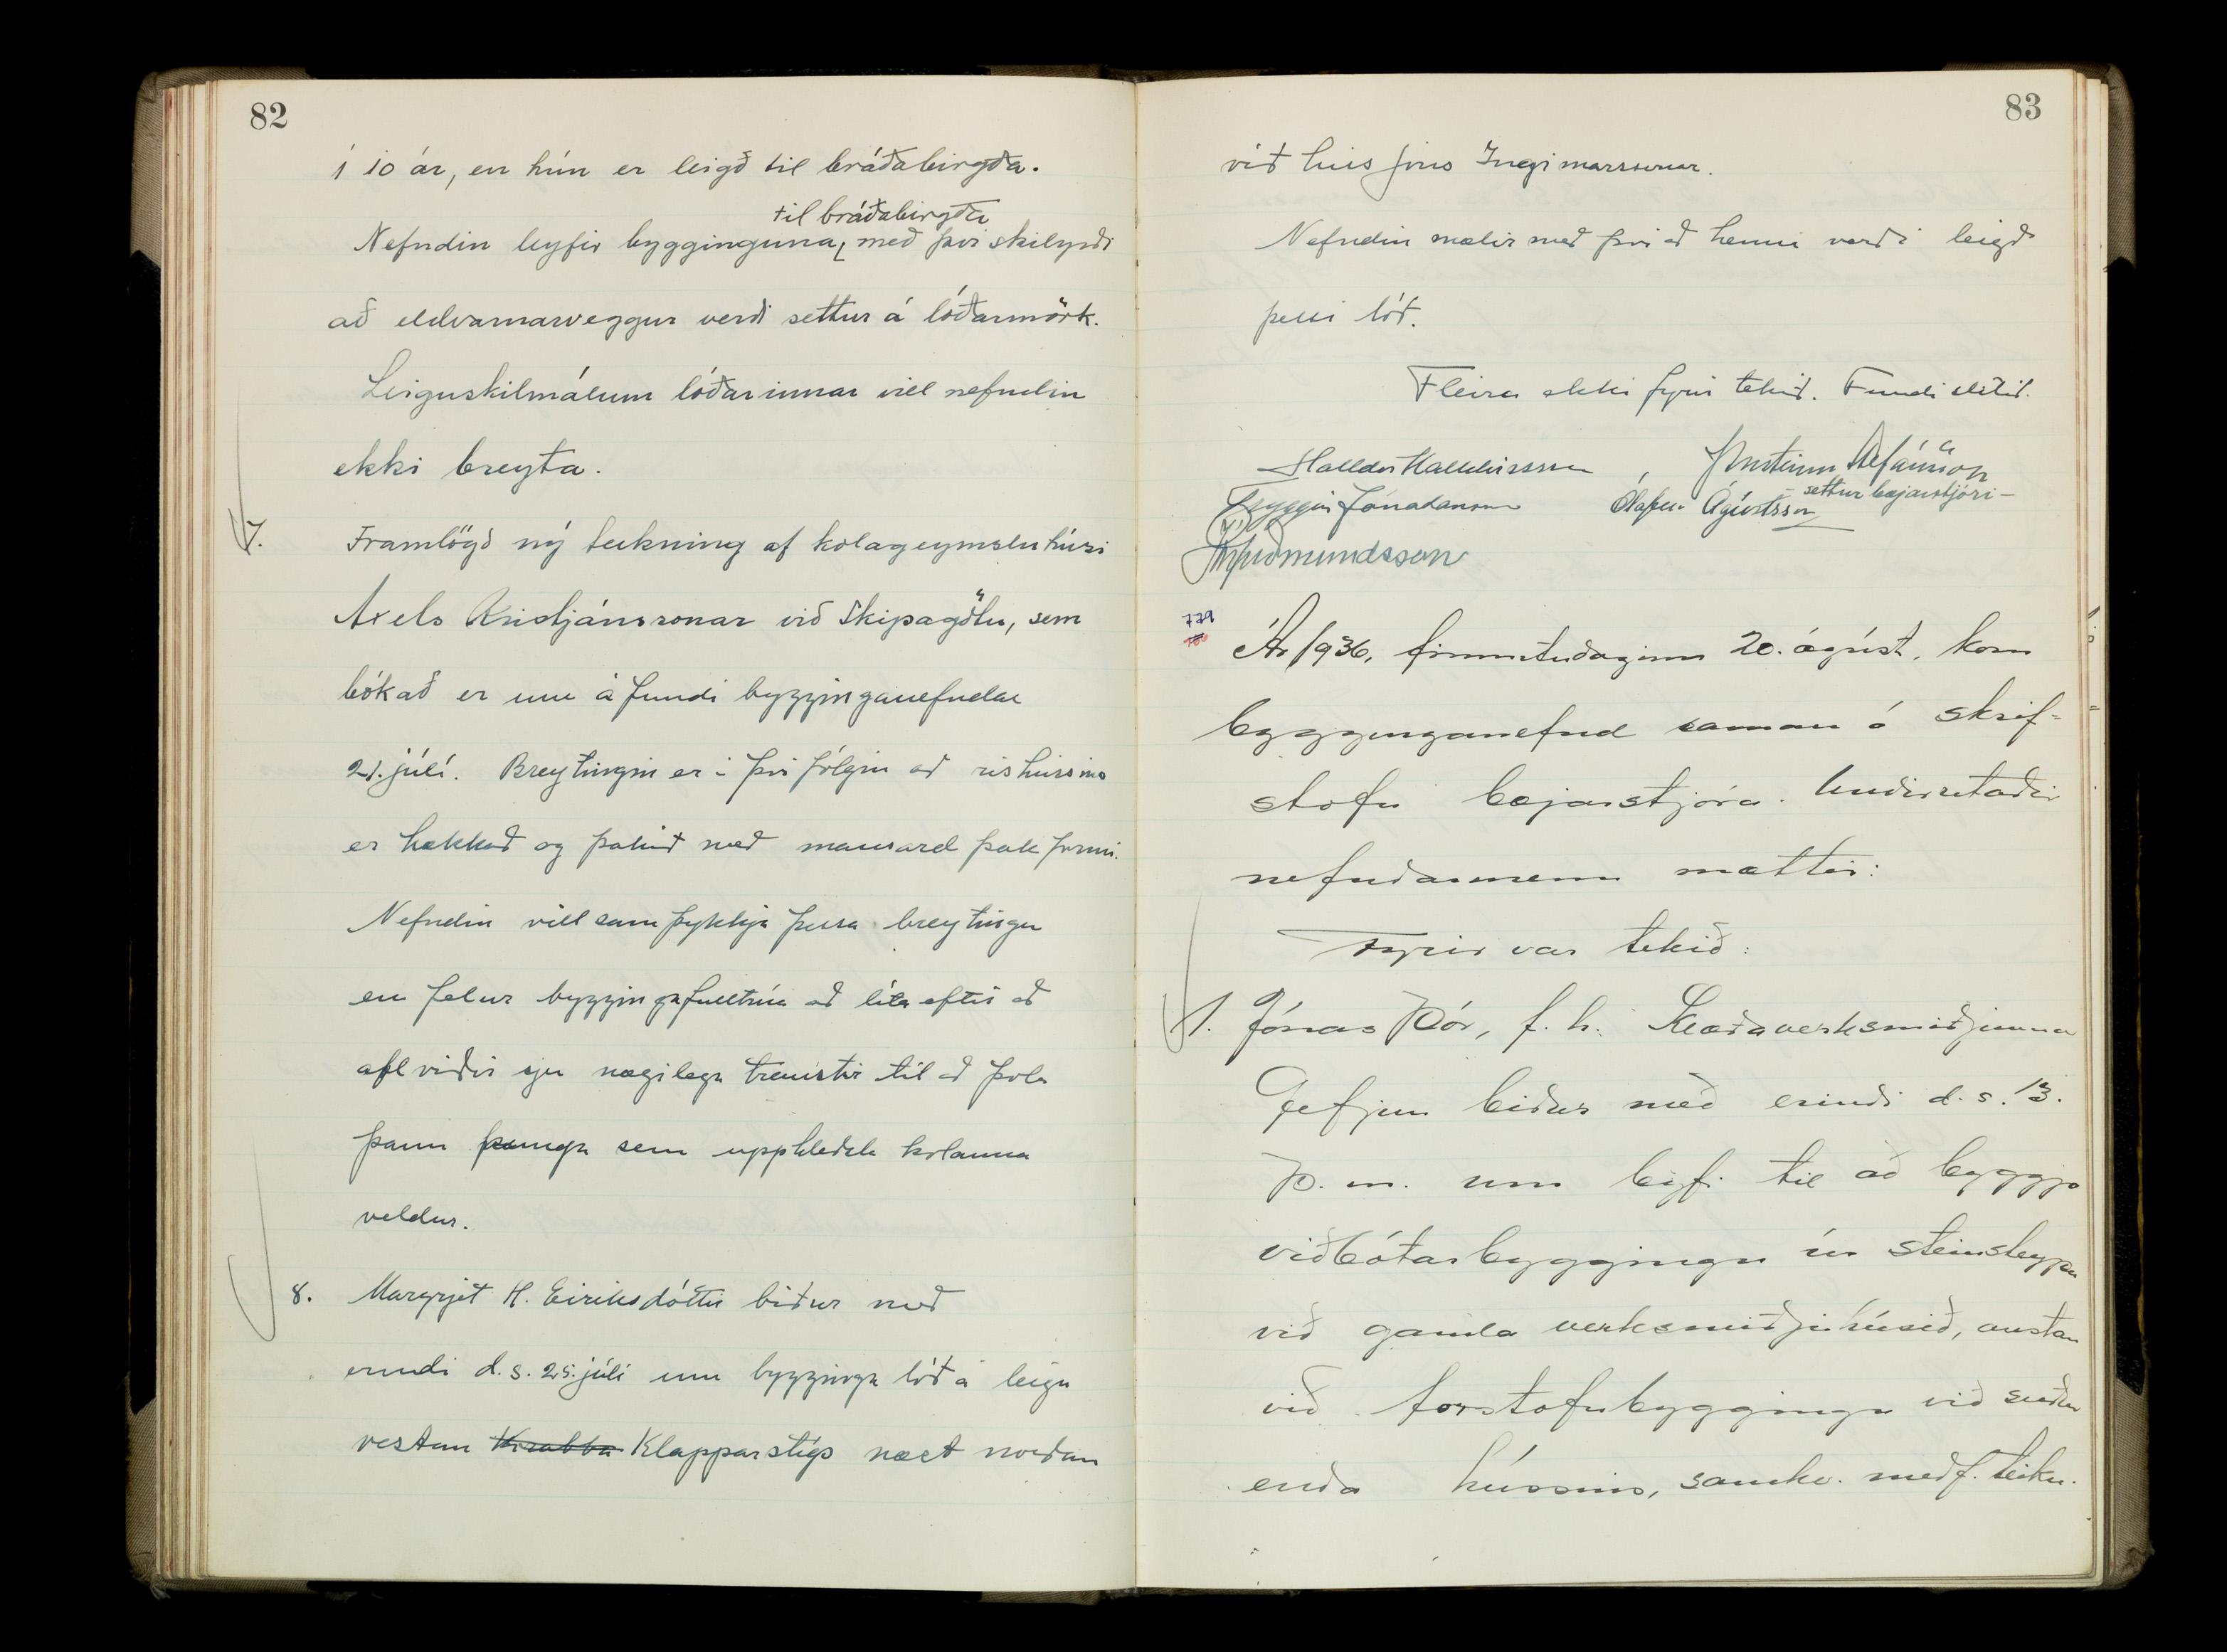 82
í 10 ár, en hún er leigð til bráðabirgða.
til bráðabirgða
Nefndin leyfir bygginguna, með því skilyrði
að eldvarnarveggur verði settur á lóðarmörk.
Leiguskilmálum lóðarinnar vill nefndin
ekki breyta.
7. Framlögð ný teikning af kolageymsluhúsi
Axels Kristjánssonar við Skipagötu, sem
bókað er um á fundi bygginganefndar
21. júlí. Breytingin er í því fólgin að ris hússins
er hækkað og þakið með mansard þak formi.
Nefndin vill samþykkja þessa breytingu
en felur byggingafulltrúa að líta eftir að
aflviðir sjeu nægilega traustir til að þola
þann þunga sem upphleðsla kolanna
veldur.
8. Margrjet H. Eiriksdóttir biður með
erindi d.s. 25. júlí um bygginga lóð á leigu
vestan Krabba Klapparstígs næst norðan
83
við hús Jóns Ingimarssonar.
Nefndin mælir með því að henni verði leigð
þessi lóð.
Fleira ekki fyrir tekið. Fundi slitið.
Halldór Halldórsson, Steinn Stefánsson
- settur bæjarstjóri -
Tryggvi Jónatansson Ólafur Ágústsson
Guðmundsson
779
Ár 1936, fimmtudaginn 20. ágúst, kom
bygginganefnd saman á skrif-
stofu bæjarstjóra. Undirritaðir
nefndarmenn mættir:
Fyrir var tekið:
1. Jónas Þór, f.h. Klæðaverksmiðjunnar
Gefjun biður með erindi d.s. 13.
þ.m. um leyfi til að byggja
viðbótarbyggingu úr steinsteypu
við gamla verksmiðjuhúsið, austan
við forstofubyggingu við suður
enda hússins, samkv. meðf. teikn.